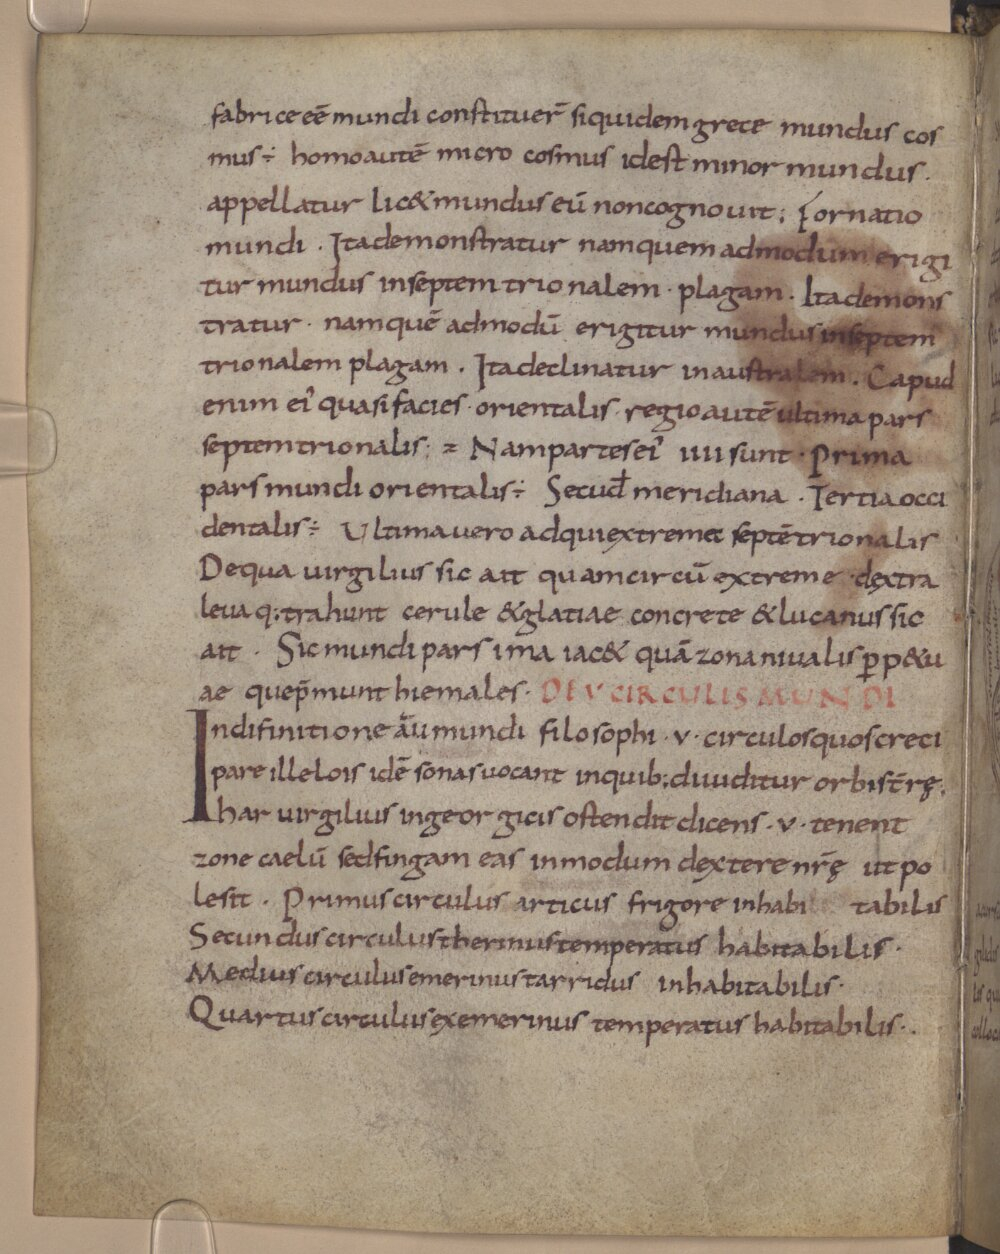 fabrice eē mundi constituer̄ siquidem grece mundus cos
mus÷ homo autē micro cosmus idest minor mundus.
appellatur lic& mundus eū non cognouit; formatio
mundi. Ita demonstratur namquem admodum erigi
tur mundus in septemtrionalem · plagam. Ita demons
tratur · namquē admodū erigitur mundus in septem
trionalem plagam. Ita declinatur in australem. Capud
enim eiꝰ quasi facies · orientalis · regio autē ultima pars
septemtrionalis; Nam partes eiꝰ iiii sunt · Prima
pars mundi orientalis÷ Secud̄ meridiana. Tertia occi
dentalis÷ Ultima uero adqui extrema septētrionalis
De qua uirgilius sic ait quam circū extreme dextra
leua q; trahunt cerule & glatiae concrete & lucanus sic
ait. Sic mundi pars ima iac& quā zona niualis ꝑp&u
ae que p̄munt hiemales. DE V CIRCULIS MUNDI
In difinitione aūm mundi filosophi · v · circulos quos creci
pare illelois idē sonas uocant in quib; diuiditur orbis t̄rę;
har uirgilius in georgicis ostendit dicens · v · tenent
zone caelū sed fingam eas in modum dextere nr̄ę ut po
lesit. Primus circulus articus frigore inhabi tabilis
Secundus circulus therinus temperatus habitabilis.
Medius circulus emerinus tarridus inhabitabilis.
Quartus circulus exemerinus temperatus habitabilis.